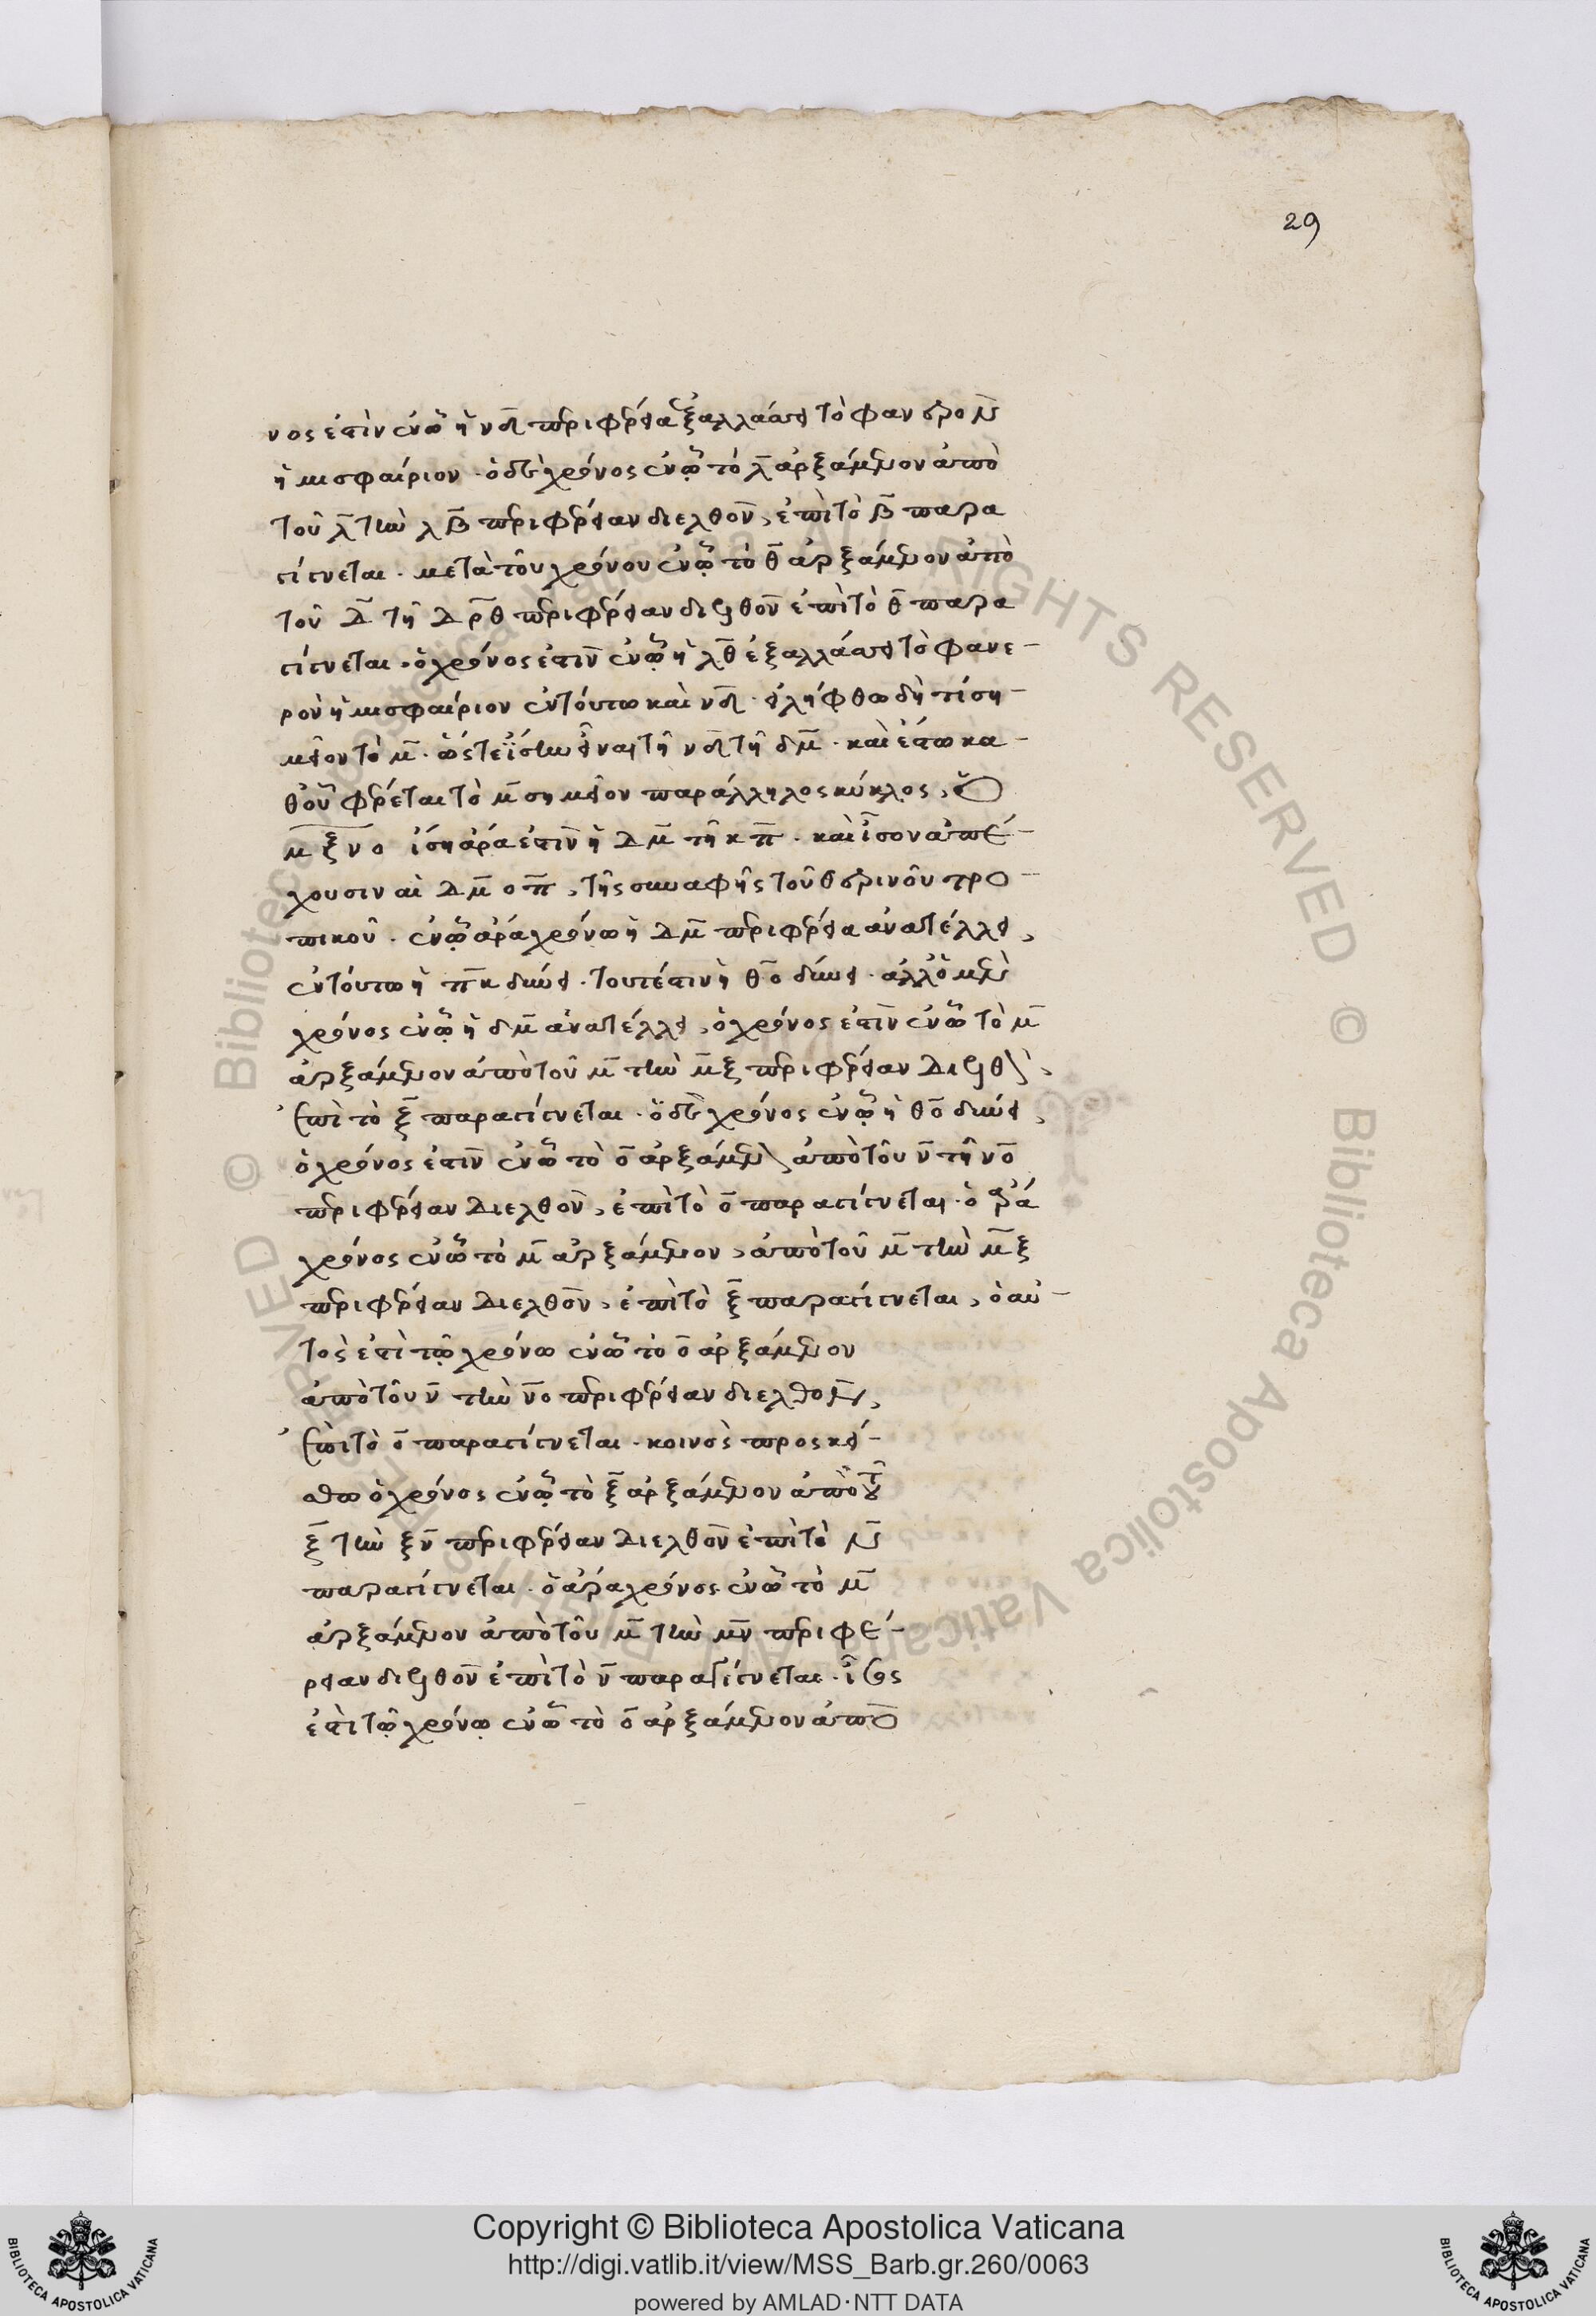 29
νος ἐστὶν ἐν ᾧ ἡ νδ περιφέρεια ἐξαλλάσσει τὸ φανερὸν
ἡμισφαίριον · ὁ δὲ χρόνος ἐν ᾧ τὸ λ ἀρξάμενον ἀπὸ
τοῦ λ τὴν λβ περιφέρειαν διελθὸν, ἐπὶ τὸ β παρα
γίγνεται · μετὰ τοῦ χρόνου ἐν ᾧ τὸ θ ἀρξάμενον ἀπὸ
τοῦ δ τῆ δρθ περιφέρειαν διελθὸν ἐπὶ τὸ θ παρα
γίγνεται · ὁ χρόνος ἐστὶν ἐν ᾧ ἡ λθ ἐξαλλάσσει τὸ φανε-
ρὸν ἡμισφαίριον ἐν τούτω καὶ νδ · εἰλήφθω δὴ τί ση-
μεῖον τὸ μ · ὥστε ἴσην εἶναι τῆ νδ τῆ δμ · καὶ ἔστω κα-
θ' οὗ φέρεται τὸ μ σημεῖον παράλληλος κύκλος, ὁ
μξνο ἴση ἄρα ἐστὶν ἡ δμ τῆ κπ · καὶ ἴσον ἀπέ-
χουσιν αἱ δμ οπ, τῆς συναφῆς τοῦ θερινοῦ τρο-
πικοῦ · ἐν ᾧ ἄρα χρόνω ἡ δμ περιφέρεια ἀνατέλλει,
ἐν τούτω ἡ πκ δύνει · τουτέστιν ἡ θο δύνει · ἀλλ' ὁ μὲν
χρόνος ἐν ᾧ ἡ δμ ἀνατέλλει, ὁ χρόνος ἐστὶν ἐν ᾧ τὸ μ
ἀρξάμενον ἀπὸ τοῦ μ τὴν μξ περιφέρειαν διελθὸν,
ἐπὶ τὸ ξ παραγίγνεται · ὁ δὲ χρόνος ἐν ᾧ ἡ θο δύνει,
ὁ χρόνος ἐστὶν ἐν ᾧ τὸ ο ἀρξάμενον ἀπὸ τοῦ ν τῆ νο
περιφέρειαν διελθὸν, ἐπὶ τὸ ο παραγίγνεται · ὁ ἄρα
χρόνος ἐν ᾧ τὸ μ ἀρξάμενον, ἀπὸ τοῦ μ τὴν μξ
περιφέρειαν διελθὸν, ἐπὶ τὸ ξ παραγίγνεται, ὁ αὐ-
τός ἐστι τῷ χρόνω ἐν ᾧ τὸ ο ἀρξάμενον
ἀπὸ τοῦ ν τὴν νο περιφέρειαν διελθὸν,
ἐπὶ τὸ ο παραγίγνεται · κοινὸς προσκεί-
σθω ὁ χρόνος ἐν ᾧ τὸ ξ ἀρξάμενον ἀπὸ τοῦ
ξ τὴν ξν περιφέρειαν διελθὸν ἐπὶ τὸ ν
παραγίγνεται · ὁ ἄρα χρόνος ἐν ᾧ τὸ μ
ἀρξάμενον ἀπὸ τοῦ μ τὴν μν περιφέ-
ρειαν διελθὸν ἐπὶ τὸ ν παραγίγνεται · ἴσος
ἐστὶ τῷ χρόνῳ ἐν ᾧ τὸ ο ἀρξάμενον ἀπὸ
Copyright © Biblioteca Apostolica Vaticana
http://digi.vatlib.it/view/MSS_Barb.gr.260/0063
powered by AMLAD·NTT DATA